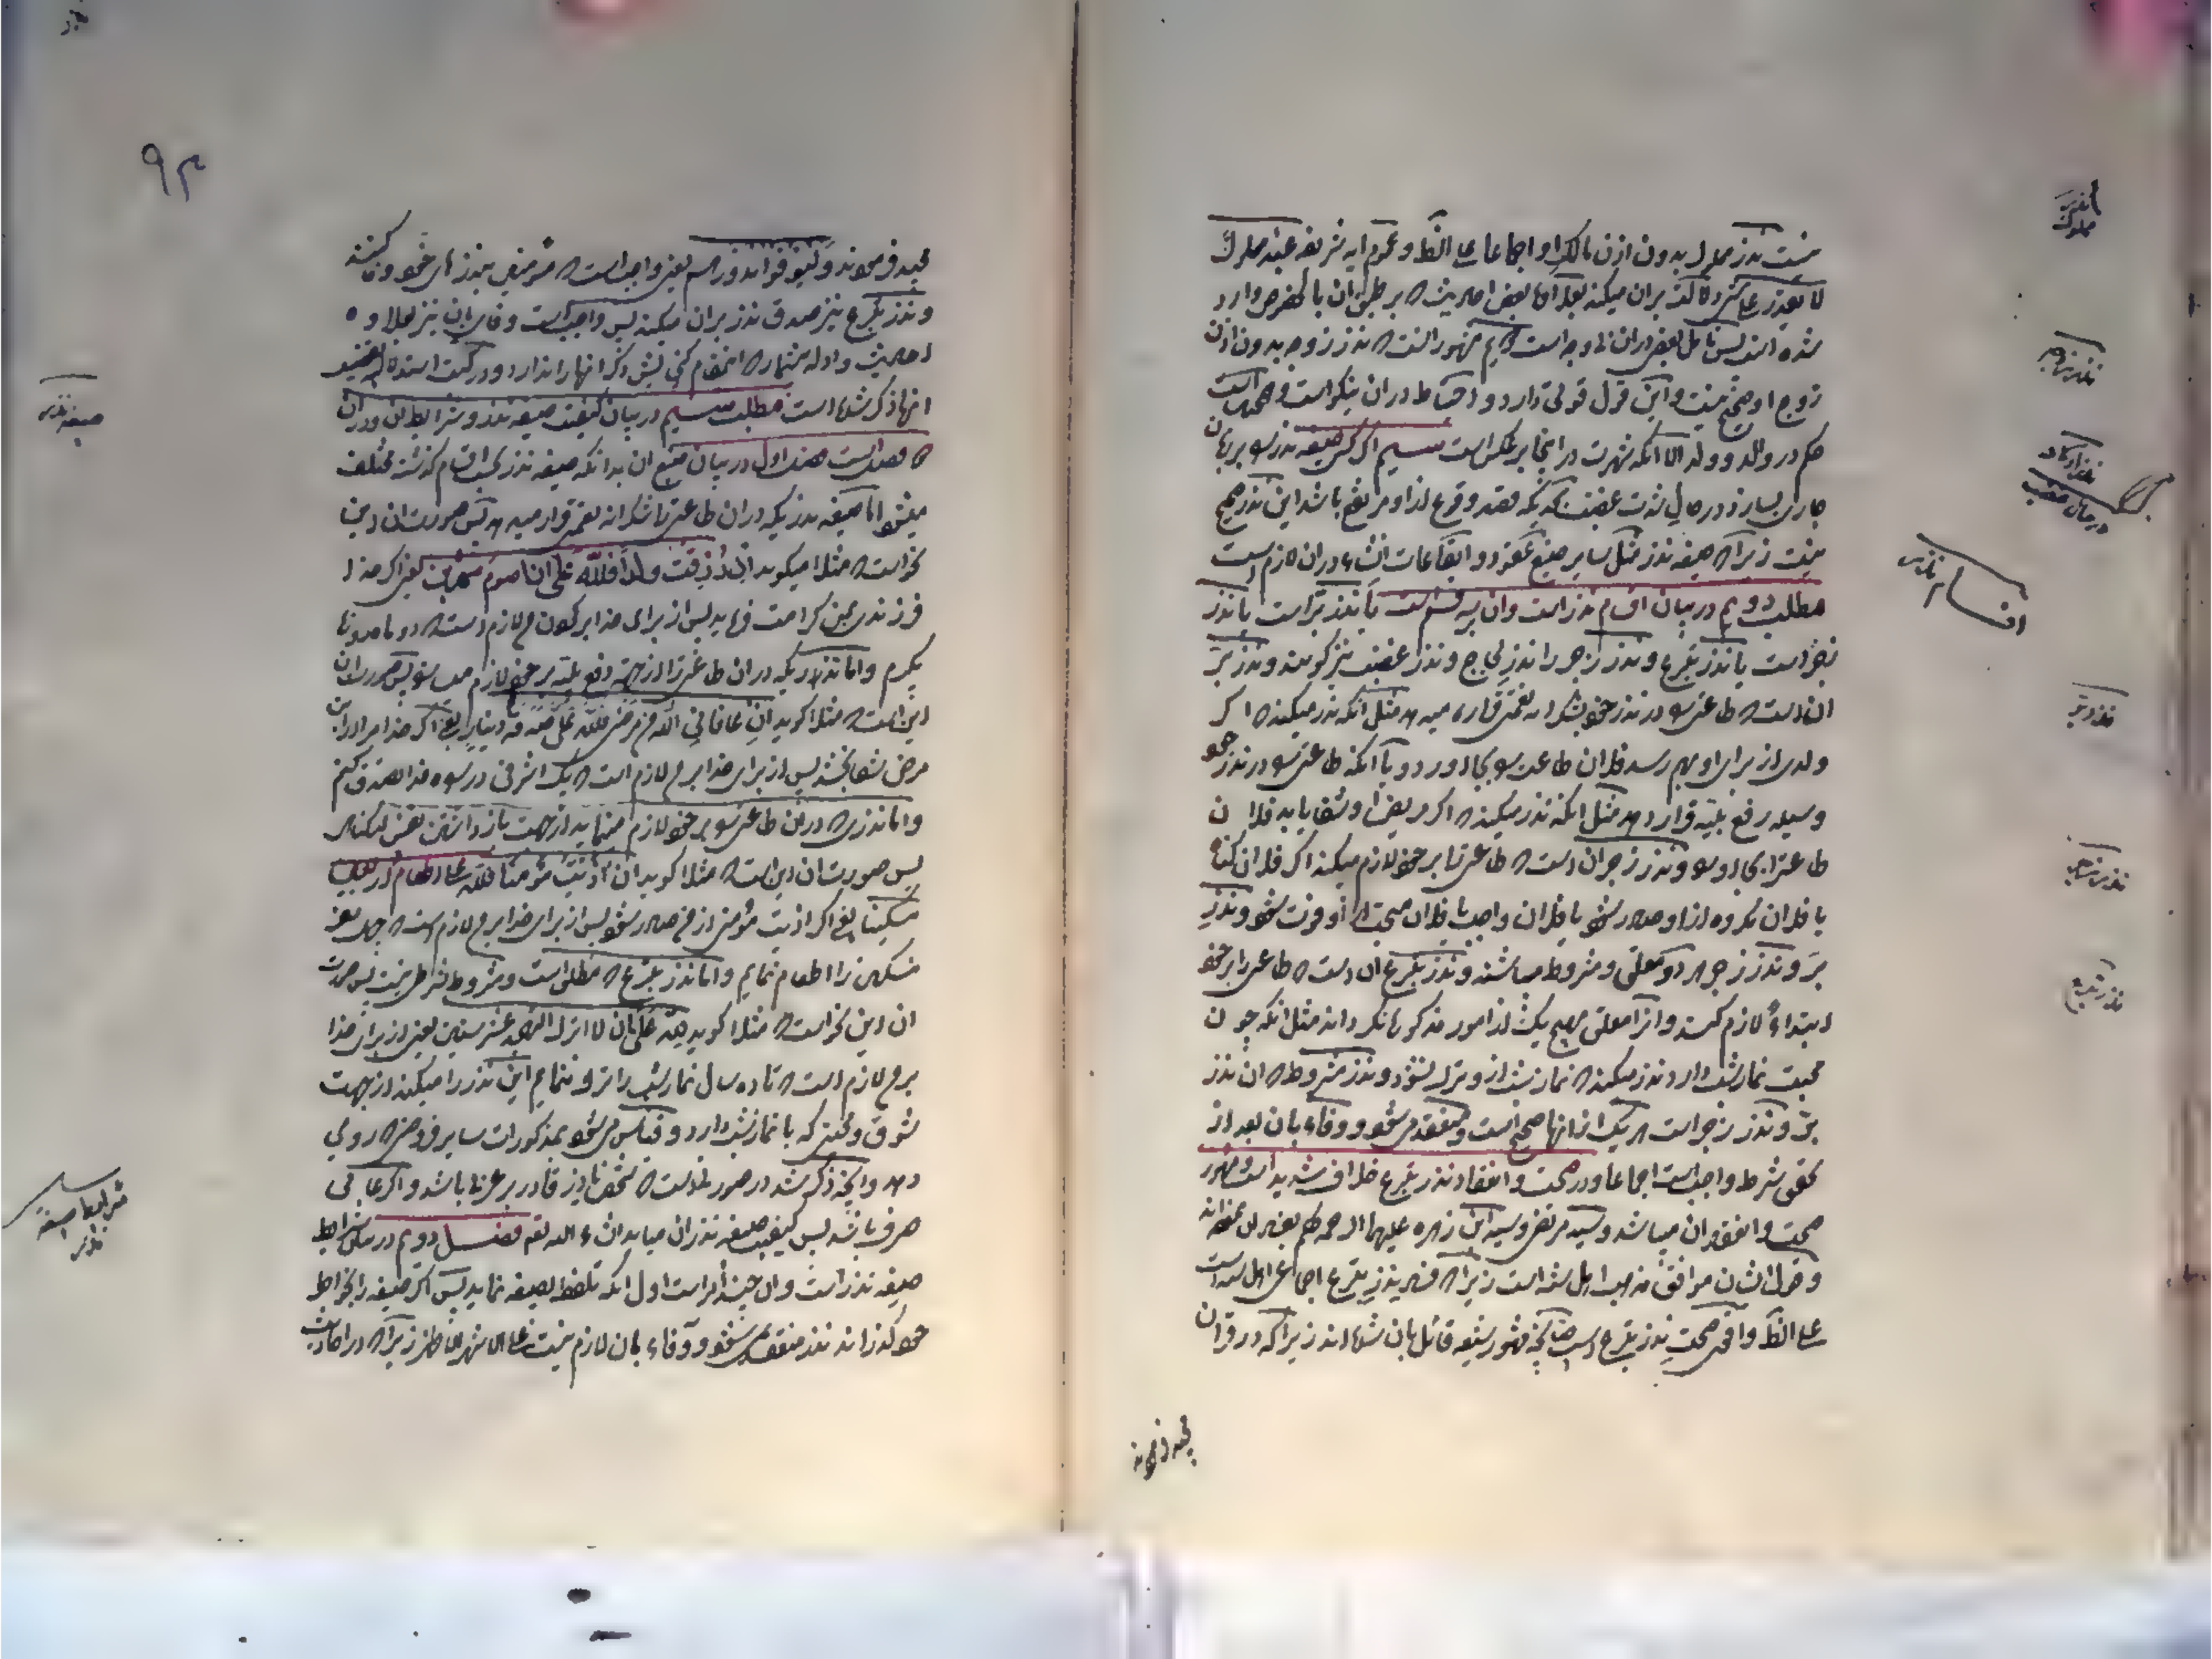 نیست نذر مملوک بدون اذن مالک او اجماعا علی الظ و عموم ایه شریفه عبدا مملوکا
لا یقدر علی شئ دلالت بران میکند بعلاوه بعض احادیث که بر طبق ان بالخصوص وارد
شده است پس تامل بعض دران بی وجه است مشهور انست که نذر زوجه بدون اذن
زوج او صحیح نیست و این قول قوتی دارد و احتیاط دران نیکو است و همچنین است
حکم در والد و ولد الا انکه شهرت در اینجا بر عکس است سیم اگر کسی صیغه نذر بر زبان
جاری بسازد در حال شدت غضب که قصد وقوع از او مرتفع باشد این نذر صحیح
نیست زیرا که صیغه نذر مثل سایر صیغ عقود و ایقاعات انشاء دران لازم است
مطلب دویم در بیان اقسام نذر است وان بر سه قسم است یا نذر بر است یا نذر
زجر است یا نذر تبرع و نذر زجر را نذر لجاج و نذر غضب نیز گویند و نذر بر
ان است که طاعتی در نذر خود شکرانه نعمتی قرار میدهد مثل انکه نذر میکند که اگر
ولدی از برای او بهم رسد فلان طاعت بجا اورد و یا انکه طاعتی در نذر خود
وسیله رفع بلیه قرار دهد مثل انکه نذر میکند که اگر مریض او شفا یابد فلان
طاعت را بجا اورد و نذر زجر ان است که طاعتی را بر خود لازم میکند اگر فلان گناه
یا فلان مکروه از او صادر شود یا فلان واجب یا فلان مستحب از او فوت شود و نذر
بر و نذر زجر هر دو معلق و مشروط میباشند و نذر تبرع ان است که طاعتی را بر خود
ابتداء لازم کند و انرا معلق بهیچ یک از امور مذکوره نگرداند مثل انکه چون
محبت نماز شب دارد نذر میکند که نماز شب از او ترک نشود و نذر مشروط که ان نذر
بر و نذر زجر است هر یک از انها صحیح است و منعقد میشود و وفاء بان بعد از
تحقق شرط واجب است اجماعا و در صحت و انعقاد نذر تبرع خلاف شدید است مشهور
صحت و انعقاد ان میباشد و سید مرتضی و سید ابن زهره علیهما الرحمه
و قول ایشان موافق مذهب اهل سنت است زیرا که
علی الظ واقوی صحت نذر تبرع است چنانچه مشهور شیعه قائل بان شده اند زیرا که در قران
مجید فرموند
انفوذ مملوک
نذر زوجه
نذر اولاد
در حال غضب
اقسام نذر
نذر بر
نذر زجر
نذر تبرع
۹۳
مجید فرموند ولیوفوا نذورهم یعنی واجب است که مؤمنین بنذرهای خود وفا کنند
و نذر تبرع نیز صدق نذر بران میکند پس واجب است وفای بان نیز بعلاوه
احادیث و ادله بیشمار که این مقام گنجایش ذکر انها را ندارد و در کتب استدلالیه
انها ذکر شده است مطلب سیم در بیان کیفیت صیغه نذر و شرایط ان ودران
دو فصل است فصل اول در بیان صیغ ان بدانکه صیغه نذر بحسب اقسام گذشته مختلف
میشود اما صیغه نذریکه دران طاعتی را شکرانه نعمتی قرار میدهد پس صورت ان باین
نحو است که مثلا میگوید ان رزقت ولدا فلله علی ان اصوم شهرین یعنی اگر خدا
فرزندی بمن کرامت فرماید پس از برای خدا بر گردن من لازم است که دو ماه روزه
بگیرم و اما نذریکه دران طاعتی را از جهة دفع بلیه بر خود لازم میسازد پس صورت ان
این است که مثلا گوید ان عافانی الله من مرضی فلله علی صدقة دینار یعنی اگر خدا مرا از این
مرض شفا بخشد پس از برای خدا بر من لازم است که یک اشرفی در راه خدا تصدق کنم
و اما نذری که دران طاعتی بر خود لازم مینماید از جهت بازداشتن نفس از گناه
پس صورت ان این است که مثلا گوید ان اذیت مؤمنا فلله علی اطعام اربعین
مسکینا یعنی اگر اذیت مؤمنی از من صادر شود پس از برای خدا بر من لازم است که چهل نفر
مسکین را اطعام نمایم و اما نذر تبرع که مطلق است و مشروط بشرطی نیست پس صورت
ان باین نحو است که مثلا گوید لله علی ان لا اترک التهجد عشر سنین یعنی از برای خدا
بر من لازم است که تا ده سال نماز شب را ترک ننمایم این نذر را میکند از جهت
شوق و محبتی که با نماز شب دارد و قیاس میشود بمذکورات سایر فروضی که روی
دهد و انچه ذکر شد در صورتی است که شخص ناذر قادر بر عربی باشد و اگر عامی
صرف باشد پس کیفیت صیغه نذر ان میاید انشاء الله تعالی فصل دویم در بیان شرایط
صیغه نذر است وان چند امر است اول انکه تلفظ بصیغه نماید پس اگر صیغه را بخاطر
خود گذراند نذر منعقد نمیشود و وفاء بان لازم نیست علی الاشهر الاظهر زیرا که در احادیث
صیغه نذر
شرایط صیغه
نذر